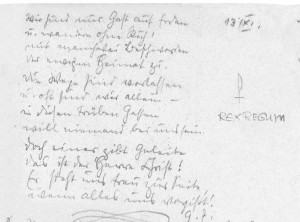 Wir sind nur Gast auf Erden
u. wandern ohne Ruh!
mit mancherlei Beschwerden
der ewigen Heimat zu.
Die Wege sind verlassen
u. oft sind wir allein –
in diesen trüben Gassen
will niemand bei uns sein.
Doch einer gibt Geleite
das ist der Herre Christ!
Er steht uns treu zur Seite,
wenn alles uns vergißt!
G. T.
13
REX REGUM